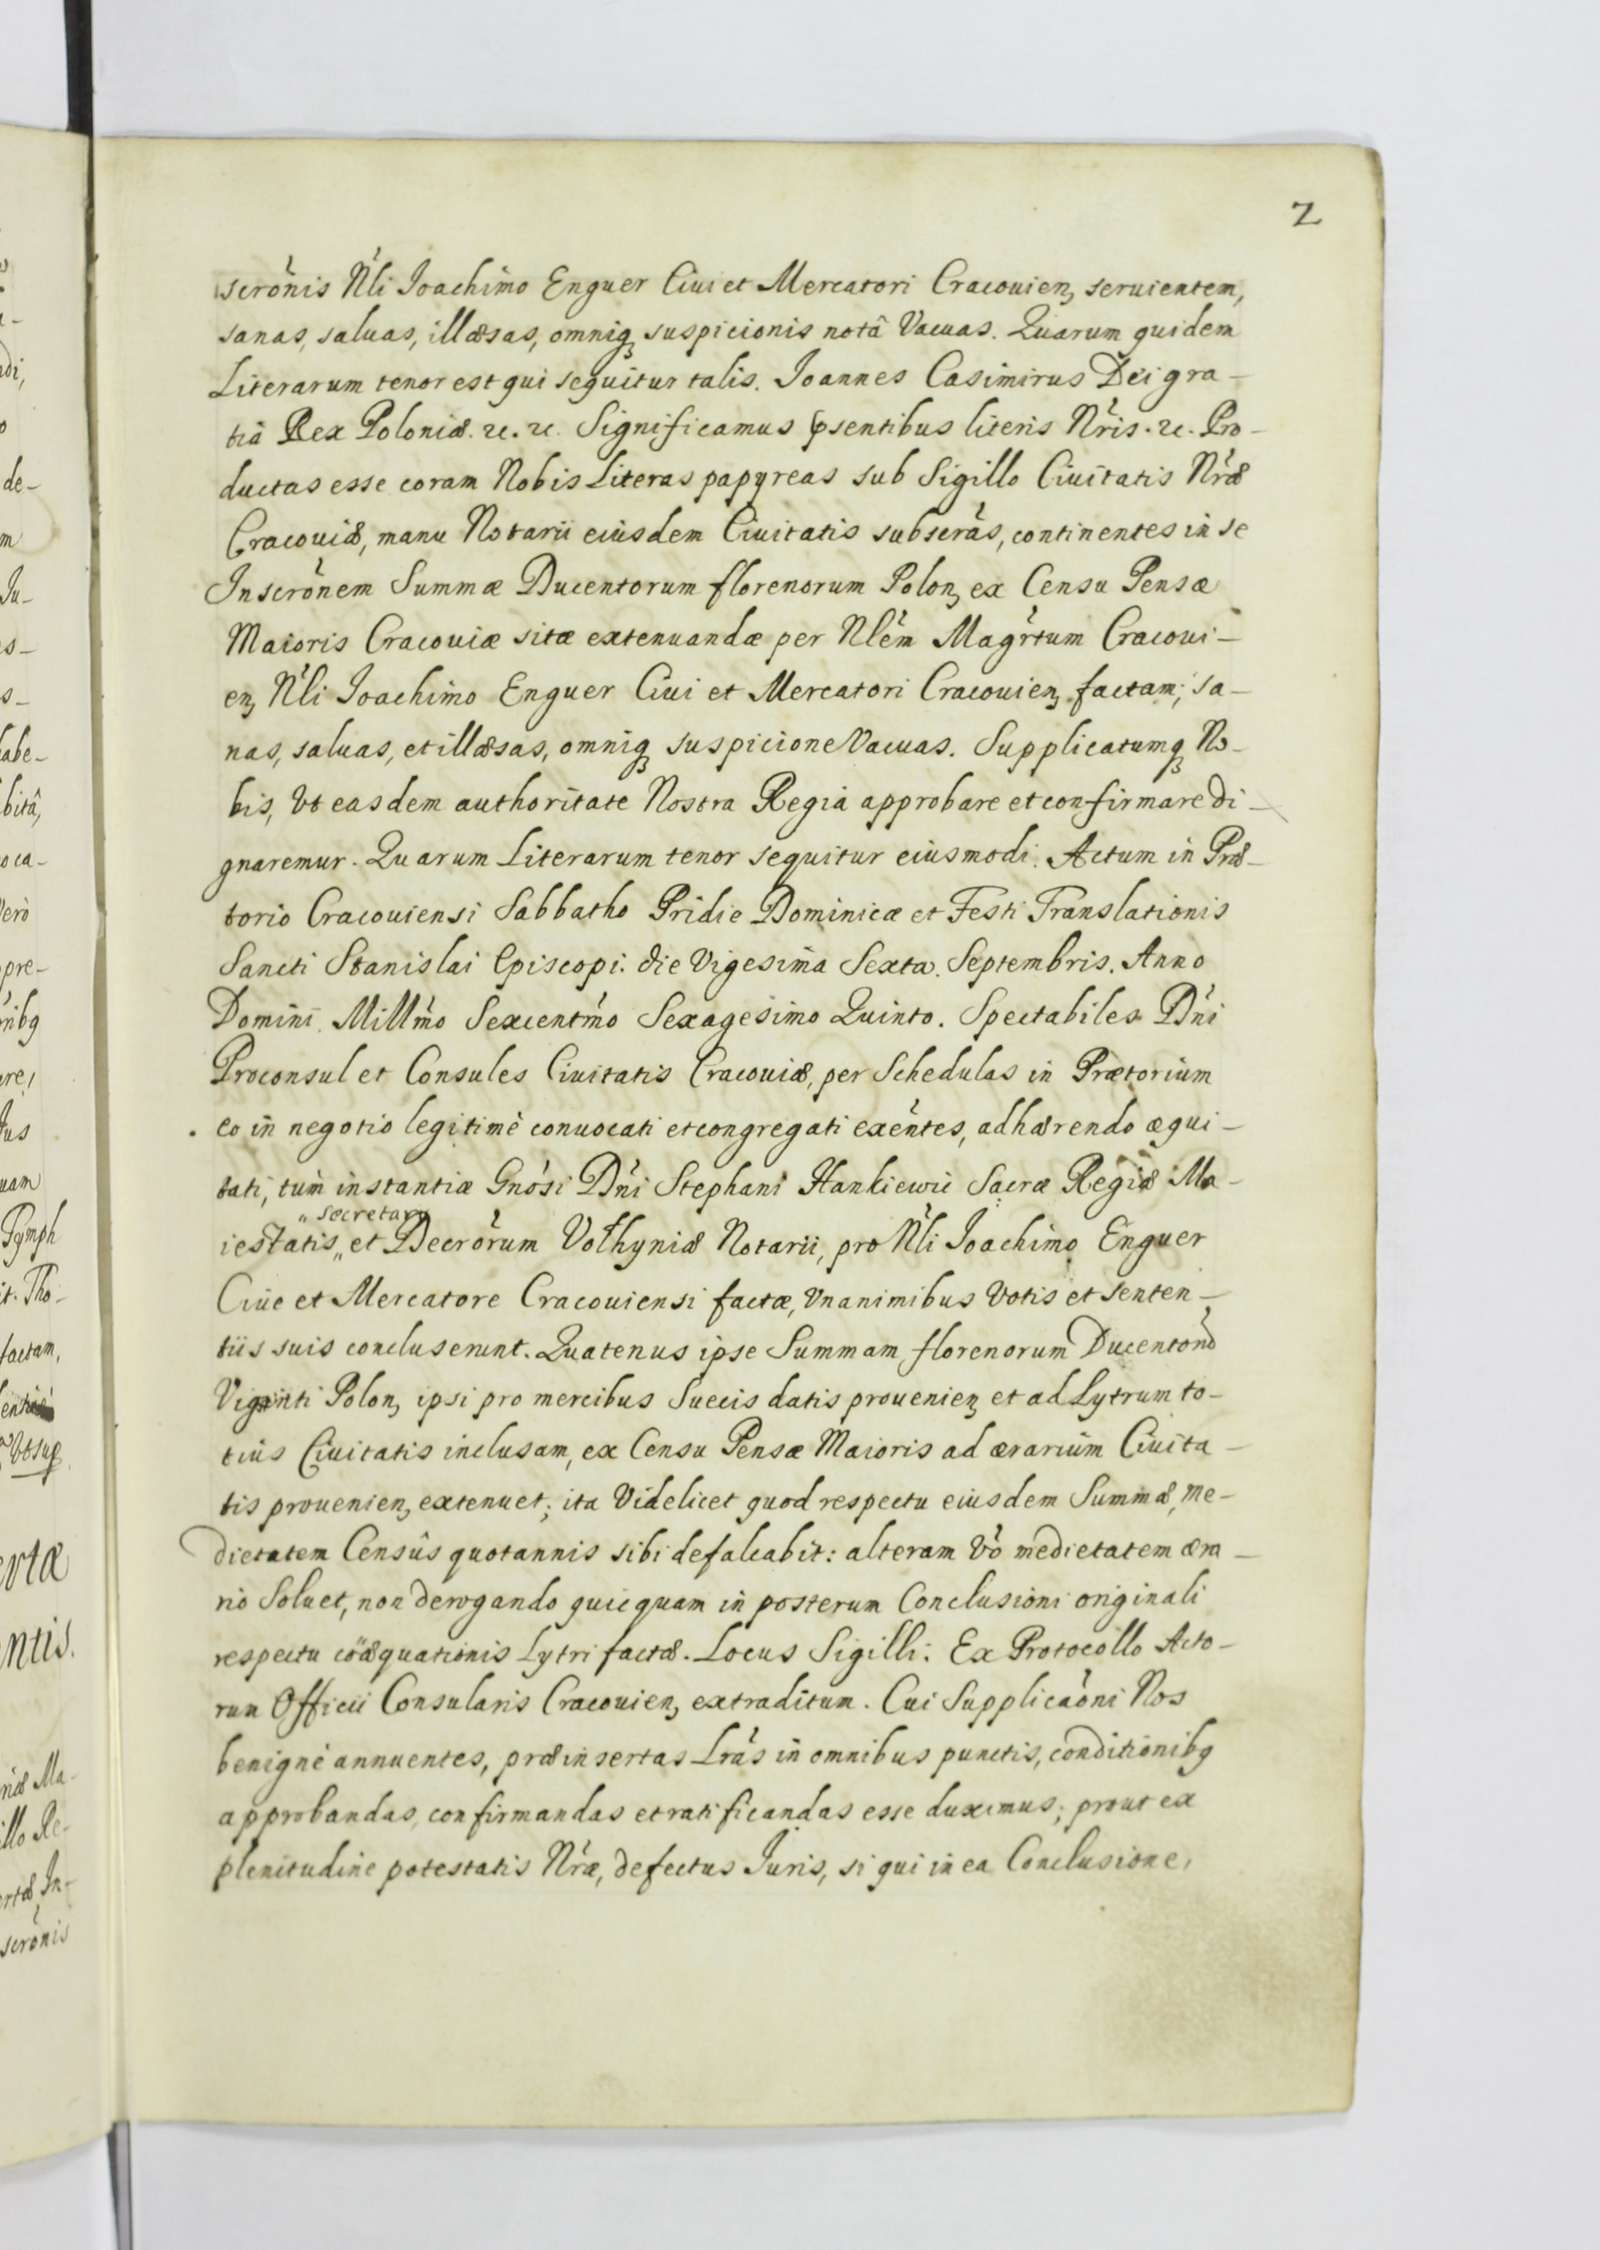 2
scrõnis Nli Ioachimo Enguer Ciui et Mercatori Cracouien, seruientem,
sanas, saluas, illæsas, omniq suspicionis notâ Vacuas. Quarum quidem
Literarum tenor est qui sequitur talis. Ioannes Casimirus Dei gra-
tiâ Rex Poloniæ. &c. &c. Significamus psentibus literis Nris. &c. Pro-
ductas esse coram Nobis Literas papyreas sub Sigillo Ciuitatis Nræ
Cracouiæ, manu Notarii eiusdem Ciuitatis subscras, continentes in se
Inscronem Summæ Ducentorum florenorum Polon, ex Censu Pensæ
Maioris Cracouiæ sitæ extenuandæ per Nlem Magrtum Cracoui-
en, Nli Ioachimo Enguer Ciui et Mercatori Cracouien, factam; sa-
nas, saluas, et illæsas, omniq suspicione Vacuas. Supplicatumq No-
bis, Vt easdem authoritate Nostra Regia approbare et confirmare di-
gnaremur. Quarum Literarum tenor sequitur eiusmodi. Actum in Præ-
torio Cracouiensi Sabbatho Pridie Dominicæ et Festi Translationis
Sancti Stanislai Episcopi. die Vigesima Sexta. Septembris. Anno
Domini. Millmo Sexcentmo Sexagesimo Quinto. Spectabiles Dni
Proconsul et Consules Ciuitatis Cracouiæ, per Schedulas in Prætorium
eo in negotio legitimè conuocati et congregati exentes, adhærendo æqui-
tati, tum instantiæ Gnosi Dni Stephani Hankiewic Sacræ Regiæ Ma-
" Secretary
iestatis " et Decrorum Volhyniæ Notarii, pro Nli Ioachimo Enguer
Ciue et Mercatore Cracouiensi factæ, Vnanimibus Votis et senten-
tiis suis concluserunt. Quatenus ipse Summam florenorum Ducentorũ
Viginti Polon, ipsi pro mercibus Suecis datis prouenien, et ad Lytrum to-
tius Ciuitatis inclusam, ex Censu Pensæ Maioris ad ærarium Ciuita-
tis prouenien, extenuet; ita Videlicet quod respectu eiusdem Summæ, me-
dietatem Censûs quotannis sibi defalcabit: alteram Vo medietatem æra-
rio Soluet, non derogando quicquam in posterum Conclusioni originali
respectu coæquationis Lytri factæ. Locus Sigilli. Ex Protocollo Acto-
rum Officii Consularis Cracouien, extraditum. Cui Supplicaoni Nos
benignè annuentes, præinsertas Lras in omnibus punctis, conditionibq
approbandas, confirmandas et ratificandas esse duximus; prout ex
plenitudine potestatis Nræ, defectus Iuris, si qui in ea Conclusione,